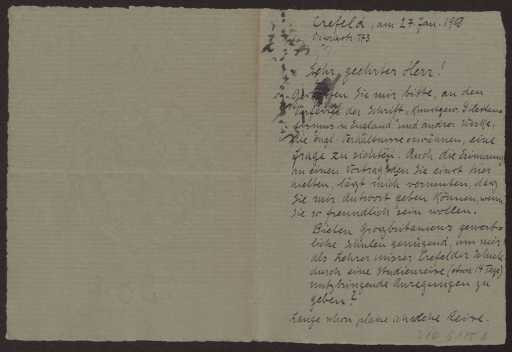 Crefeld, am 27. Jan. 19
173
Sehr geehrter Herr!
Sie mir bitte, an den
der Schrift, Kunstgew.
in England" und andrer Werke,
die Engl. Verhältnisse erwähnen, eine
Frage zu richten. Auch die Erinnerung
an einen Vortrag, den Sie einst hier
hielten, lässt mich vermuten, dass
Sie mir Antwort geben können, wenn
Sie so freundlich sein wollen.
Bieten Grossbritaniens gewerb-
liche Schulen genügend, um mir
als Lehrer unsrer Crefelder Schule
durch eine Studienreise (etwa 14 Tage)
nutzbringende Anregungen zu
geben?
Lange schon plane ich solche Reise.